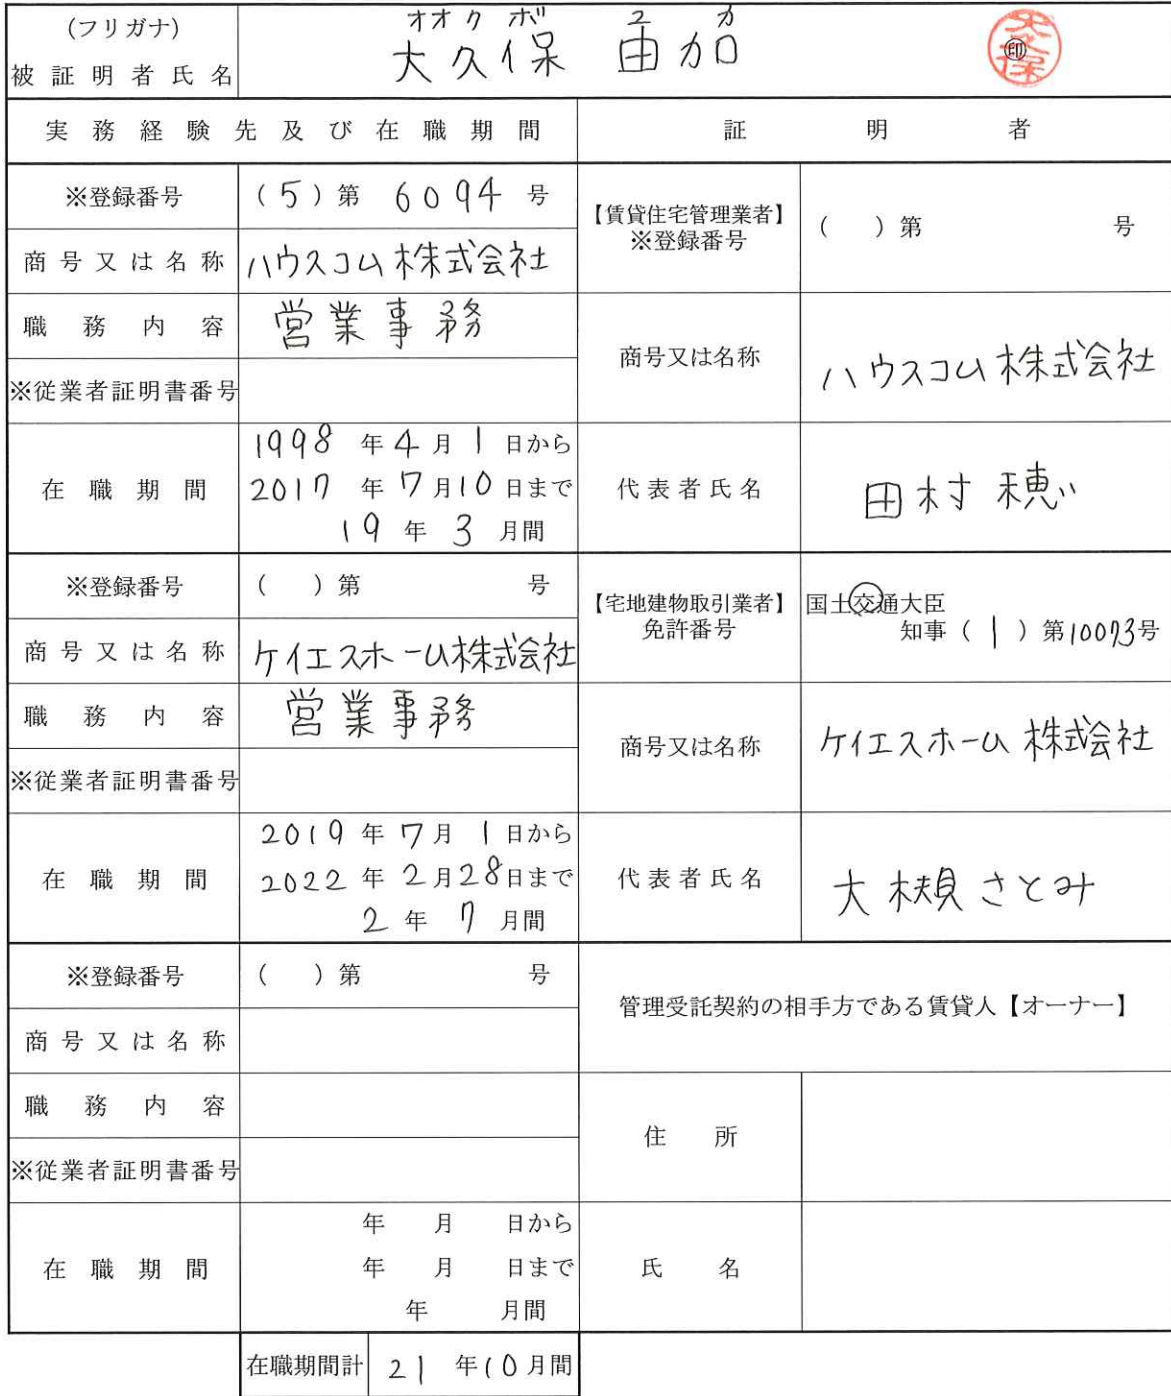 (フリガナ) オオクボ ユカ
被証明者氏名 大久保 由加 ㊞ 大久保
実務経験先及び在職期間 証明者
※登録番号 (5)第 6094 号
【賃貸住宅管理業者】
※登録番号 ( )第 号
商号又は名称 ハウスコム株式会社
職務内容 営業事務
商号又は名称 ハウスコム株式会社
※従業者証明書番号
在職期間 1998年4月1日から
2017年7月10日まで
19年3月間
代表者氏名 田村 穂
※登録番号 ( )第 号
【宅地建物取引業者】
免許番号
国土交通大臣
知事(1)第10073号
商号又は名称 ケイエスホーム株式会社
職務内容 営業事務
商号又は名称 ケイエスホーム株式会社
※従業者証明書番号
在職期間 2019年7月1日から
2022年2月28日まで
2年7月間
代表者氏名 大槻さとみ
※登録番号 ( )第 号
管理受託契約の相手方である賃貸人【オーナー】
商号又は名称
職務内容
住所
※従業者証明書番号
在職期間 年 月 日から
年 月 日まで
年 月間
氏名
在職期間計 21年10月間